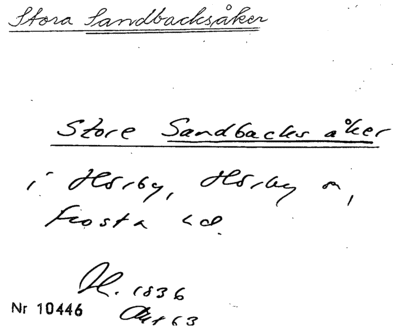 Stora Sandbacksåker
Store Sandbacks åker
i Hörby, Hörby sn,
Frosta hd.
H. 1836
Akt 63
Nr 10446